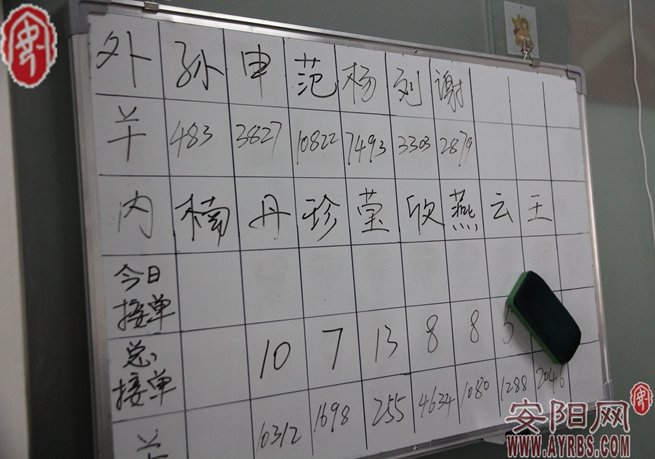 外 孙 申 范 杨 刘 谢
483 3827 10822 7493 3303 2879
内 楠 丹 珍 莹 欣 燕 云 王
今日接单
总接单 10 7 13 8 8
10312 1698 255 4634 1080 1288 2046
安阳网
WWW.AYRBS.COM